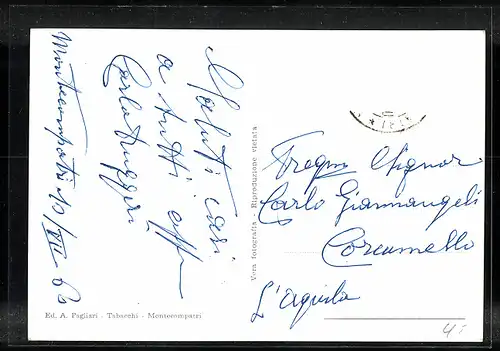 Montecompatri 10/VII-62
Saluti cari
a tutti aff
Carla Ruggeri
Ed. A. Pagliari - Tabacchi - Montecompatri
Vera fotografia - Riproduzione vietata
Signor
Carlo Giammangeli
Corcumello
L'Aquila